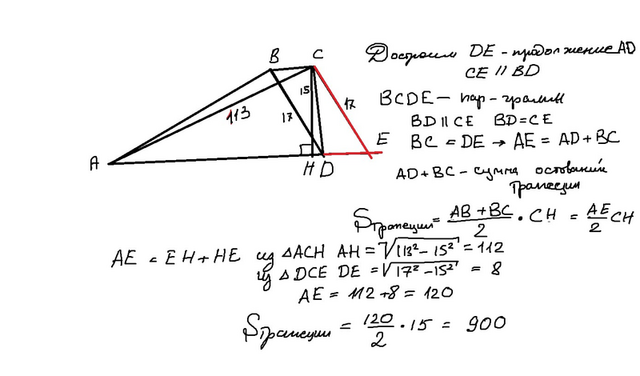 Достроим DE - продолжение AD
CE || BD
BCDE - пар-грамм
BD || CE BD = CE
BC = DE → AE = AD + BC
AD + BC - сумма оснований
трапеции
B
C
15
113
17
17
E
A
H
D
Sтрапеции = AB + BC / 2 · CH = AE / 2 CH
AE = EH + HE из △ACH AH = √113² - 15² = 112
из △DCE DE = √17² - 15² = 8
AE = 112 + 8 = 120
Sтрапеции = 120 / 2 · 15 = 900